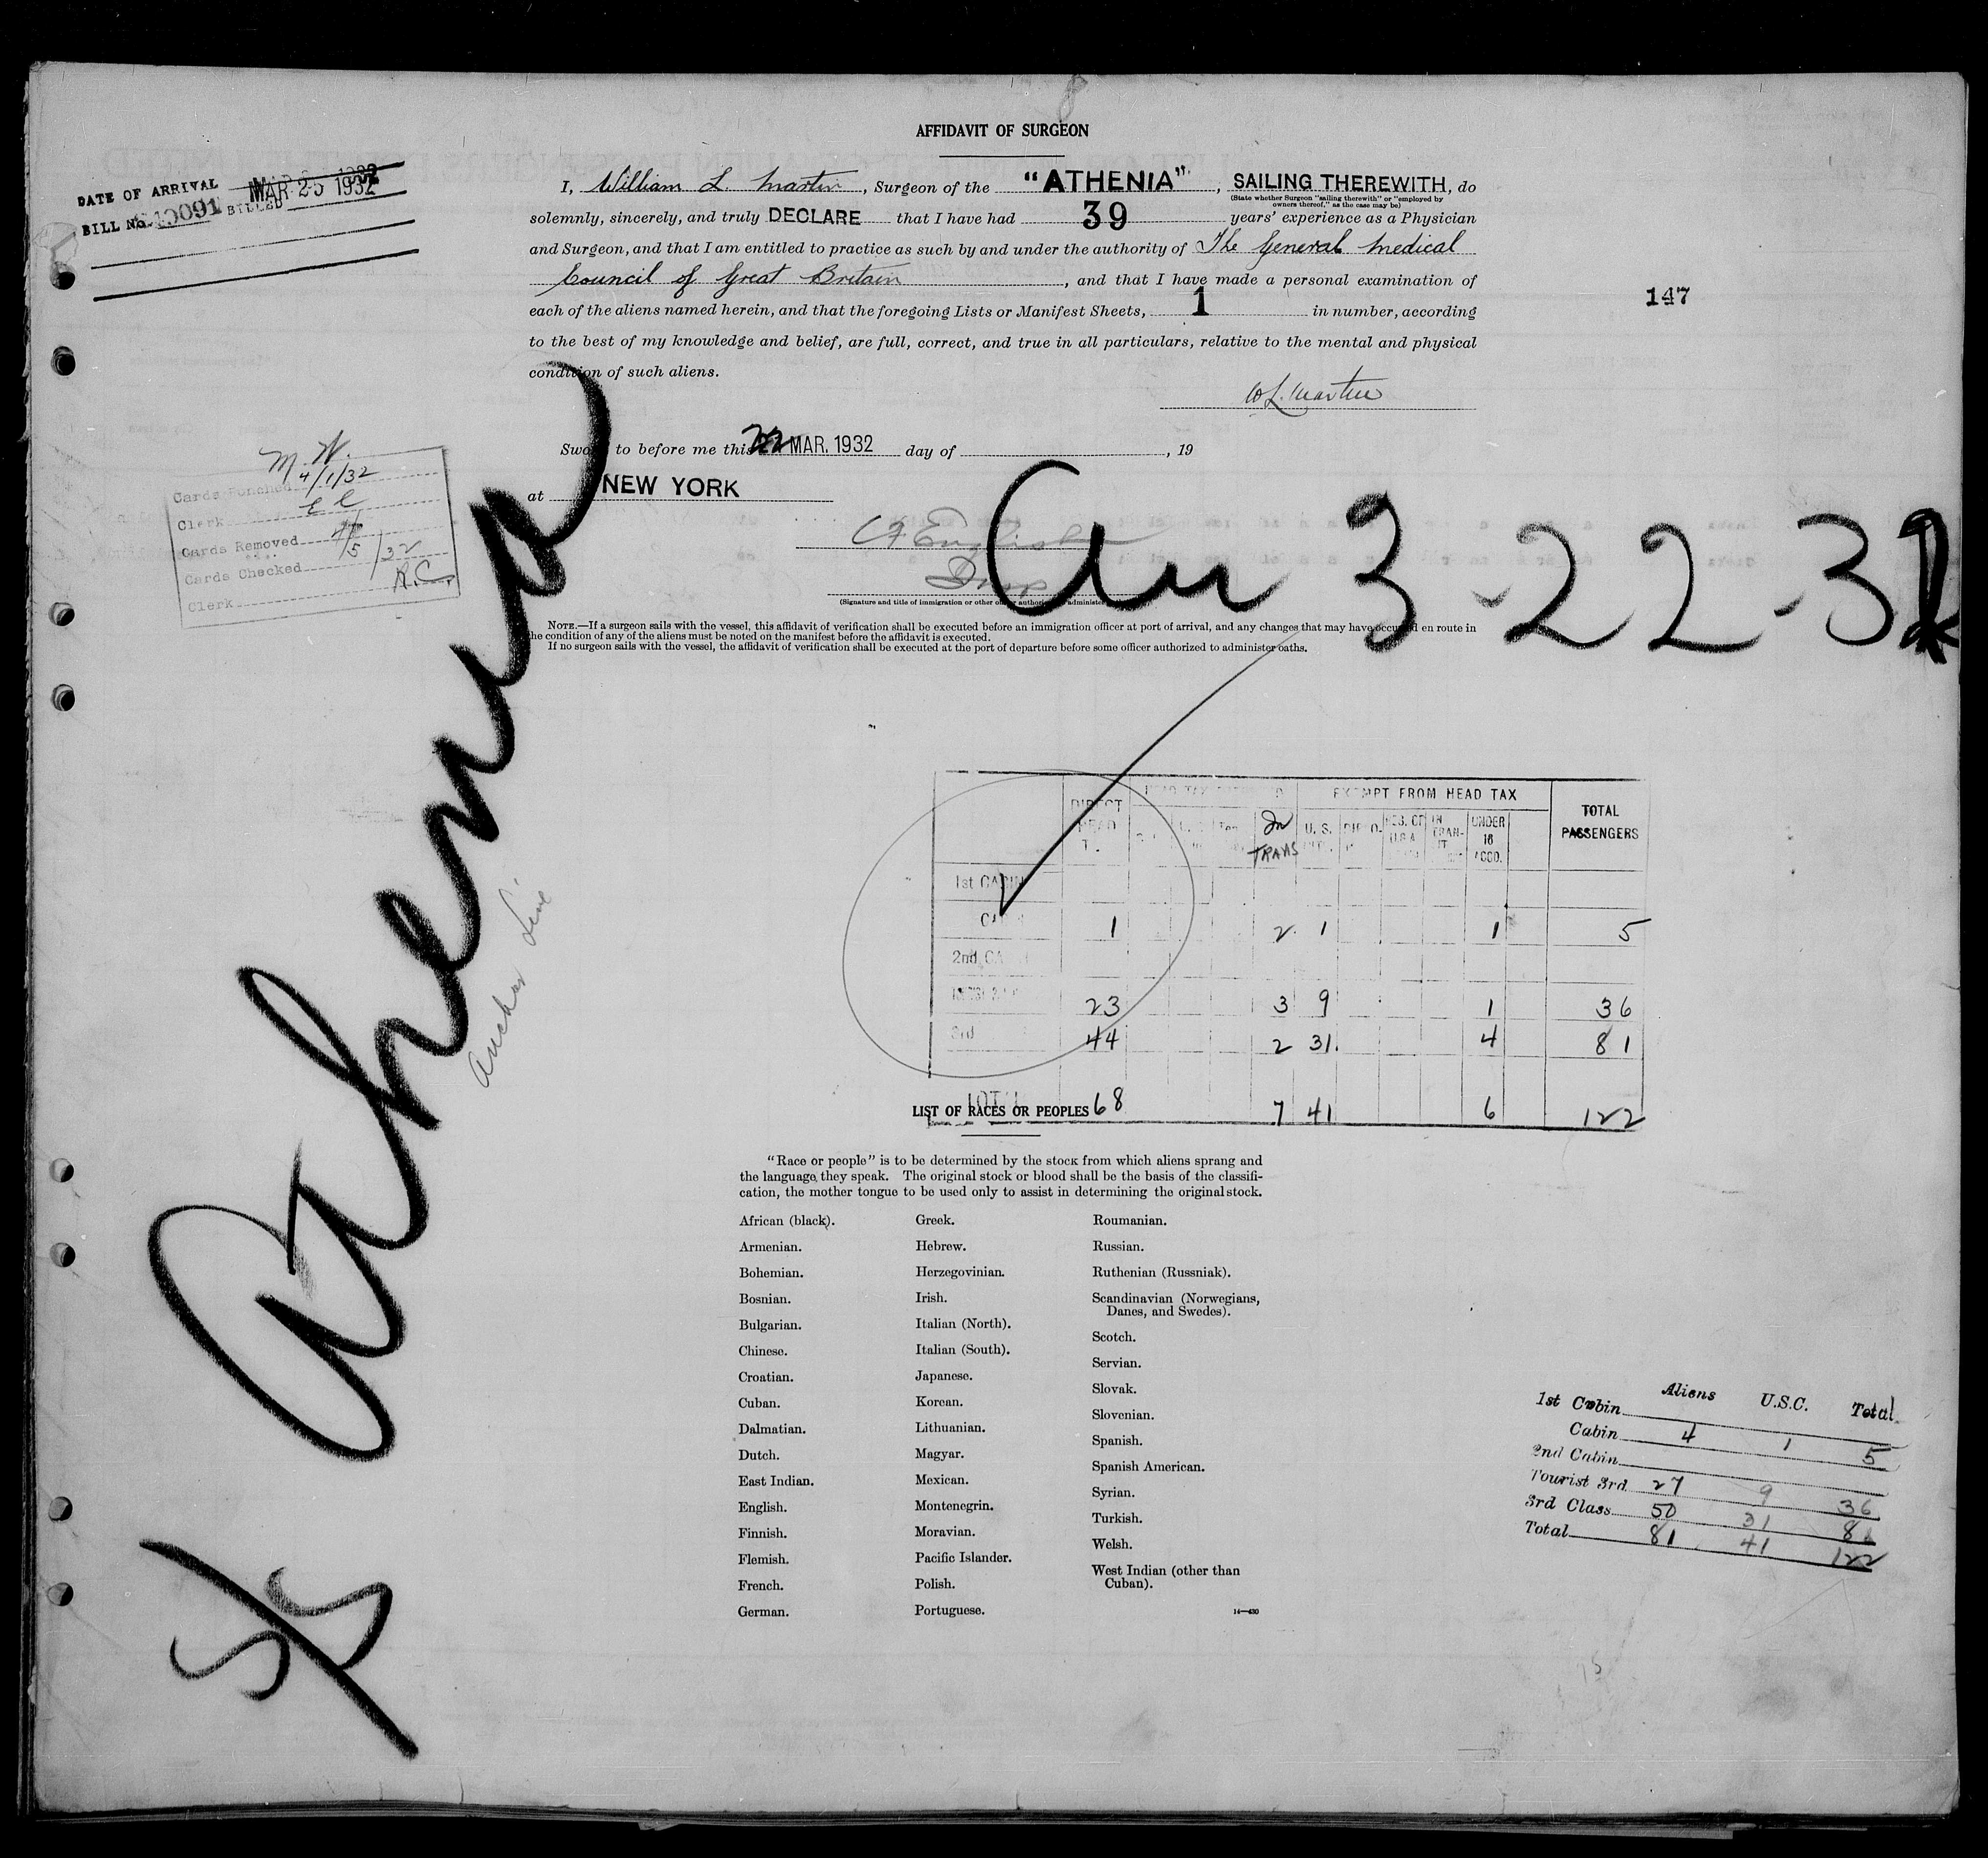 AFFIDAVIT OF SURGEON
DATE OF ARRIVAL MAR 25 1932
BILL No. BILLED
I, William L. Martin, Surgeon of the "ATHENIA", SAILING THEREWITH, do
(State whether Surgeon "sailing therewith" or "employed by
owners thereof," as the case may be)
solemnly, sincerely, and truly DECLARE that I have had 39 years' experience as a Physician
and Surgeon, and that I am entitled to practice as such by and under the authority of The General Medical
Council of Great Britain, and that I have made a personal examination of
each of the aliens named herein, and that the foregoing Lists or Manifest Sheets, 1 in number, according
to the best of my knowledge and belief, are full, correct, and true in all particulars, relative to the mental and physical
condition of such aliens.
147
W L Martin
Sworn to before me this 22 MAR. 1932 day of , 19
at NEW YORK
M. W.
Cards Punched 4/1/32
Clerk E C
Cards Removed
Cards Checked 5/32
Clerk R.C.
Insp
3-22-32
(Signature and title of immigration or other officer authorized to administer
NOTE.—If a surgeon sails with the vessel, this affidavit of verification shall be executed before an immigration officer at port of arrival, and any changes that may have occurred en route in
the condition of any of the aliens must be noted on the manifest before the affidavit is executed.
If no surgeon sails with the vessel, the affidavit of verification shall be executed at the port of departure before some officer authorized to administer oaths.
S/S Athenia
Anchor Line
DIRECT HEAD T. HEAD TAX In TRANS EXEMPT FROM HEAD TAX TOTAL PASSENGERS
U. S. DIPLO. RES. OF U.S.A. IN TRANSIT UNDER 16 ACCO.
1st CABIN
CABIN 1 2 1 1 5
2nd CABIN
23 3 9 1 36
3rd 44 2 31 4 81
TOTAL 68 7 41 6 122
LIST OF RACES OR PEOPLES
"Race or people" is to be determined by the stock from which aliens sprang and
the language they speak. The original stock or blood shall be the basis of the classifi-
cation, the mother tongue to be used only to assist in determining the original stock.
African (black).
Armenian.
Bohemian.
Bosnian.
Bulgarian.
Chinese.
Croatian.
Cuban.
Dalmatian.
Dutch.
East Indian.
English.
Finnish.
Flemish.
French.
German.
Greek.
Hebrew.
Herzegovinian.
Irish.
Italian (North).
Italian (South).
Japanese.
Korean.
Lithuanian.
Magyar.
Mexican.
Montenegrin.
Moravian.
Pacific Islander.
Polish.
Portuguese.
Roumanian.
Russian.
Ruthenian (Russniak).
Scandinavian (Norwegians,
Danes, and Swedes).
Scotch.
Servian.
Slovak.
Slovenian.
Spanish.
Spanish American.
Syrian.
Turkish.
Welsh.
West Indian (other than
Cuban).
14—430
Aliens U.S.C. Total
1st Cabin
Cabin 4 1 5
2nd Cabin
Tourist 3rd 27 9 36
3rd Class 50 31 81
Total 81 41 122
15